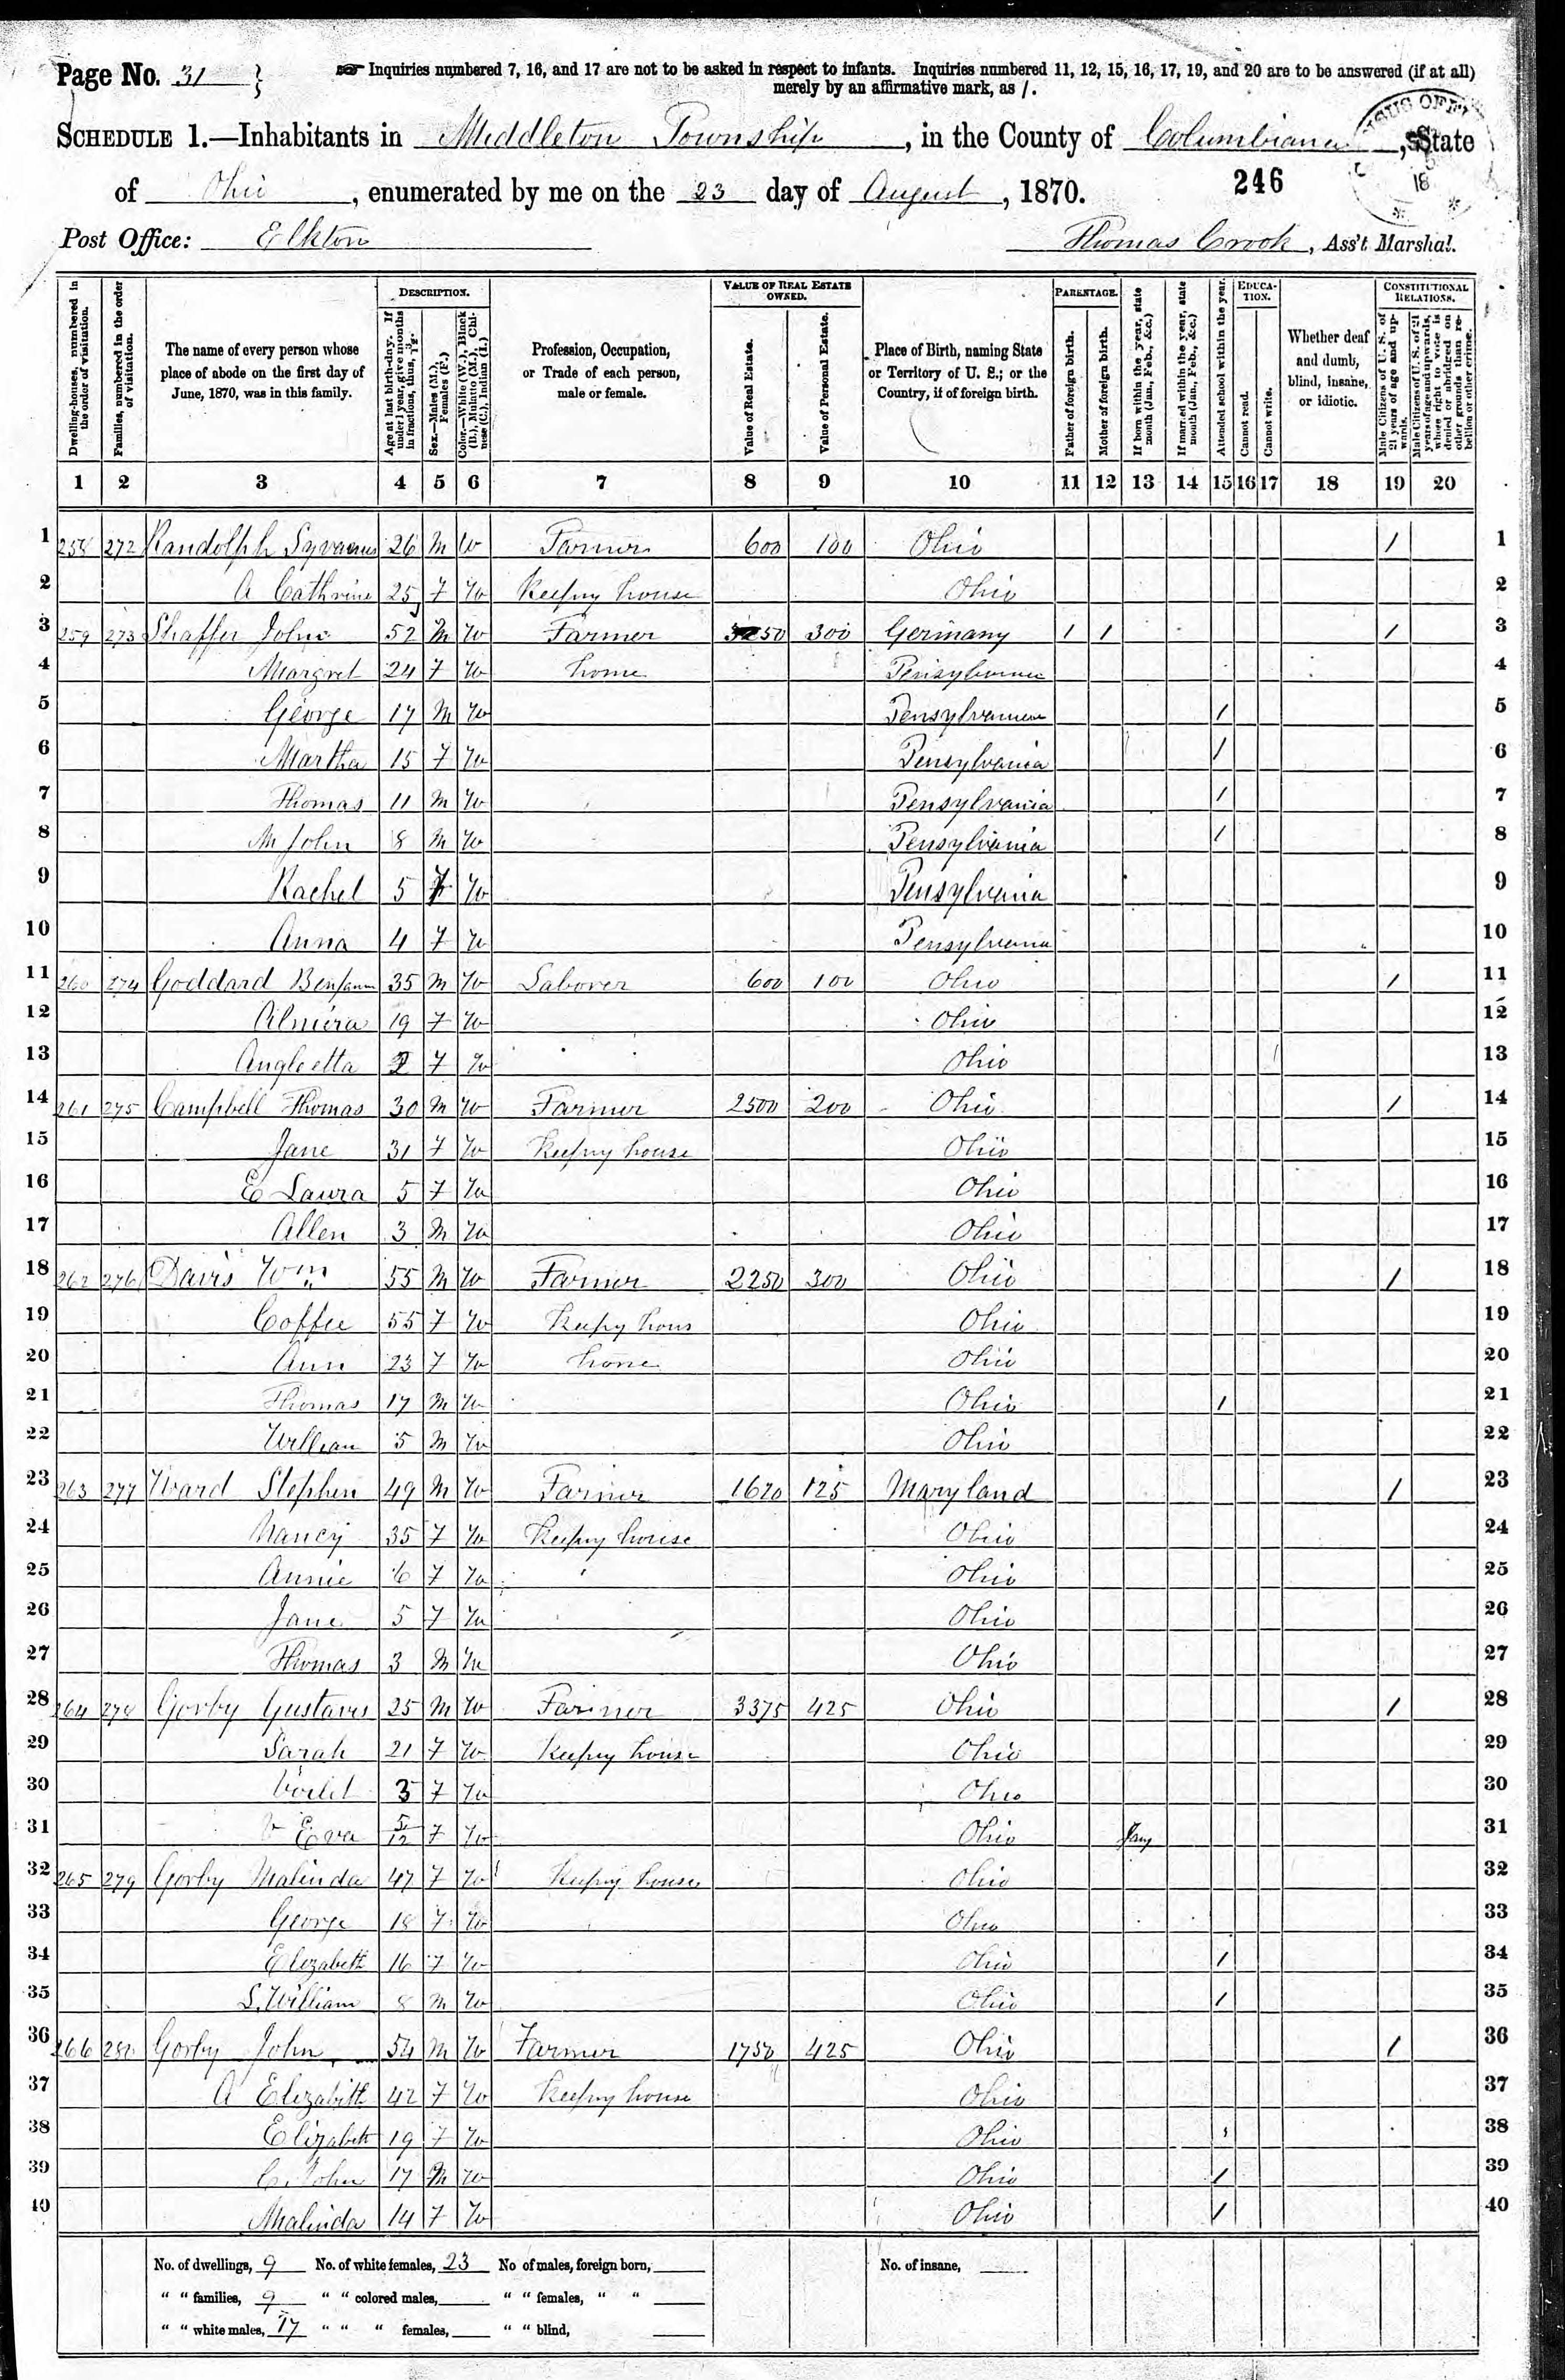 Page No. 31
☞ Inquiries numbered 7, 16, and 17 are not to be asked in respect to infants. Inquiries numbered 11, 12, 15, 16, 17, 19, and 20 are to be answered (if at all)
merely by an affirmative mark, as /.
SCHEDULE 1.—Inhabitants in Middleton Township, in the County of Columbiana, State
of Ohio, enumerated by me on the 23 day of August, 1870.
246
Post Office: Elkton
Thomas Crook, Ass't Marshal.
Dwelling-houses, numbered in the order of visitation.
Families, numbered in the order of visitation.
The name of every person whose place of abode on the first day of June, 1870, was in this family.
DESCRIPTION.
Age at last birth-day. If under 1 year, give months in fractions, thus, 3/12.
Sex.—Males (M.), Females (F.)
Color.—White (W.), Black (B.), Mulatto (M.), Chinese (C.), Indian (I.)
Profession, Occupation, or Trade of each person, male or female.
VALUE OF REAL ESTATE OWNED.
Value of Real Estate.
Value of Personal Estate.
Place of Birth, naming State or Territory of U. S.; or the Country, if of foreign birth.
PARENTAGE.
Father of foreign birth.
Mother of foreign birth.
If born within the year, state month (Jan., Feb., &c.)
If married within the year, state month (Jan., Feb., &c.)
EDUCATION.
Attended school within the year.
Cannot read.
Cannot write.
Whether deaf and dumb, blind, insane, or idiotic.
CONSTITUTIONAL RELATIONS.
Male Citizens of U. S. of 21 years of age and upwards.
Male Citizens of U. S. of 21 years of age and upwards, whose right to vote is denied or abridged on other grounds than rebellion or other crime.
1 2 3 4 5 6 7 8 9 10 11 12 13 14 15 16 17 18 19 20
1 258 272 Randolph Syvanus 26 M W Farmer 600 100 Ohio / 1
2 A Cathrine 25 F W Keepng house Ohio 2
3 259 273 Shaffer John 52 M W Farmer 300 Germany / / / 3
4 Margret 24 F W home Pensylvania 4
5 George 17 M W Pensylvania / 5
6 Martha 15 F W Pensylvania / 6
7 Thomas 11 M W Pensylvania / 7
8 M John 8 M W Pensylvania / 8
9 Rachel 5 F W Pensylvania 9
10 Anna 4 F W Pensylvania 10
11 260 274 Goddard Benjamin 35 M W Laborer 600 100 Ohio / 11
12 Almira 19 F W Ohio 12
13 Angleetta 2 F W Ohio 13
14 261 275 Campbell Thomas 30 M W Farmer 2500 200 Ohio / 14
15 Jane 31 F W Keepng house Ohio 15
16 E Laura 5 F W Ohio 16
17 Allen 3 M W Ohio 17
18 262 276 Davis Wm 55 M W Farmer 2250 300 Ohio / 18
19 Coffee 55 F W Keepng hous Ohio 19
20 Ann 23 F W home Ohio 20
21 Thomas 17 M W Ohio / 21
22 William 5 M W Ohio 22
23 263 277 Ward Stephen 49 M W Farmer 1620 125 Maryland / 23
24 Nancy 35 F W Keepng house Ohio 24
25 Annie 6 F W Ohio 25
26 Jane 5 F W Ohio 26
27 Thomas 3 M W Ohio 27
28 264 278 Gorby Gustavus 25 M W Farmer 3375 425 Ohio / 28
29 Sarah 21 F W Keepng house Ohio 29
30 Voilet 3 F W Ohio 30
31 V Eva 5/12 F W Ohio Jany 31
32 265 279 Gorby Malinda 47 F W Keepng house Ohio 32
33 George 18 F W Ohio 33
34 Elizabeth 16 F W Ohio / 34
35 S. William 8 M W Ohio / 35
36 266 280 Gorby John 54 M W Farmer 1750 425 Ohio / 36
37 A Elizabeth 42 F W Keepng house Ohio 37
38 Elizabeth 19 F W Ohio 38
39 C. John 17 M W Ohio / 39
40 Malinda 14 F W Ohio / 40
No. of dwellings, 9 No. of white females, 23 No of males, foreign born, No. of insane,
" " families, 9 " " colored males, " " females, " "
" " white males, 17 " " " females, " " blind,